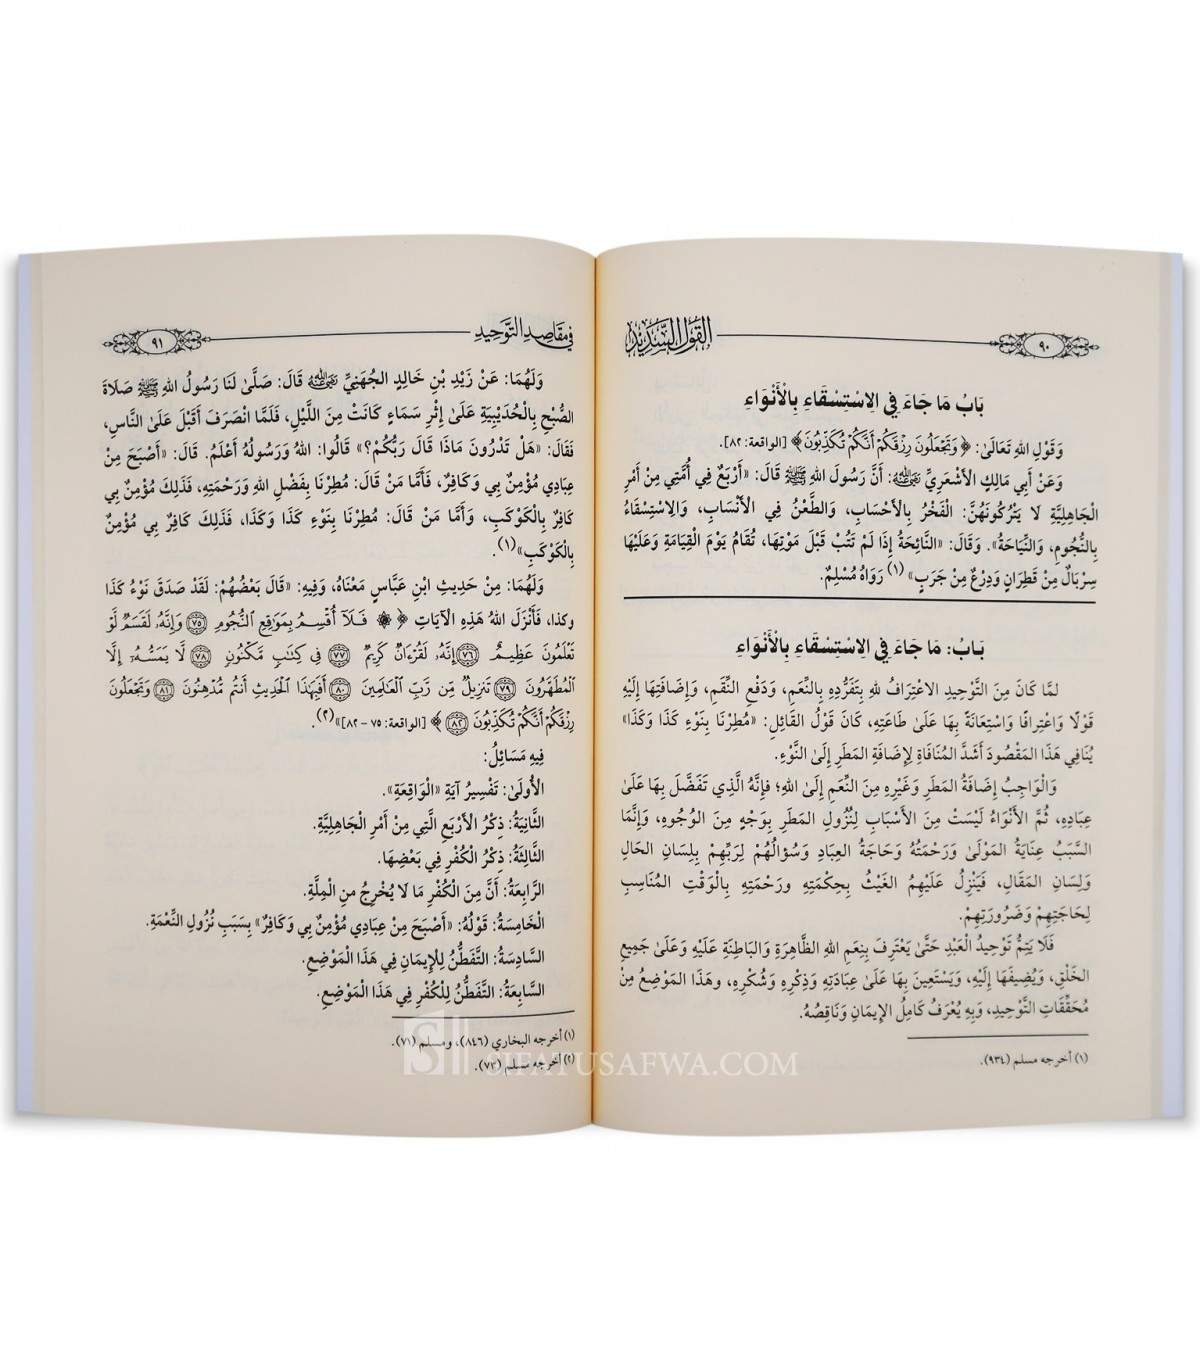 ٩٠
القَوْلُ السَّدِيدُ
بَابُ مَا جَاءَ فِي الِاسْتِسْقَاءِ بِالْأَنْوَاءِ
وَقَوْلِ اللهِ تَعَالَىٰ: ﴿وَتَجْعَلُونَ رِزْقَكُمْ أَنَّكُمْ تُكَذِّبُونَ﴾ [الواقعة: ٨٢].
وَعَنْ أَبِي مَالِكٍ الأَشْعَرِيِّ ﵁: أَنَّ رَسُولَ اللهِ ﷺ قَالَ: «أَرْبَعٌ فِي أُمَّتِي مِنْ أَمْرِ
الجَاهِلِيَّةِ لَا يَتْرُكُونَهُنَّ: الْفَخْرُ بِالأَحْسَابِ، وَالطَّعْنُ فِي الأَنْسَابِ، وَالِاسْتِسْقَاءُ
بِالنُّجُومِ، وَالنِّيَاحَةُ». وَقَالَ: «النَّائِحَةُ إِذَا لَمْ تَتُبْ قَبْلَ مَوْتِهَا، تُقَامُ يَوْمَ القِيَامَةِ وَعَلَيْهَا
سِرْبَالٌ مِنْ قَطِرَانٍ وَدِرْعٌ مِنْ جَرَبٍ» (١) رَوَاهُ مُسْلِمٌ.
بَابُ: مَا جَاءَ فِي الِاسْتِسْقَاءِ بِالْأَنْوَاءِ
لمَّا كَانَ مِنَ التَّوْحِيدِ الاعْتِرَافُ للهِ بِتَفَرُّدِهِ بِالنِّعَمِ، وَدَفْعِ النِّقَمِ، وَإِضَافَتِهَا إِلَيْهِ
قَوْلًا وَاعْتِرَافًا وَاسْتِعَانَةً بِهَا عَلَىٰ طَاعَتِهِ، كَانَ قَوْلُ القَائِلِ: «مُطِرْنَا بِنَوْءِ كَذَا وَكَذَا»
يُنَافِي هَذَا المَقْصُودَ أَشَدَّ المُنَافَاةِ لِإِضَافَةِ المَطَرِ إِلَىٰ النَّوْءِ.
وَالْوَاجِبُ إِضَافَةُ المَطَرِ وَغَيْرِهِ مِنَ النِّعَمِ إِلَىٰ اللهِ؛ فإِنَّهُ الَّذِي تَفَضَّلَ بِهَا عَلَىٰ
عِبَادِهِ، ثُمَّ الأَنْوَاءُ لَيْسَتْ مِنَ الأَسْبَابِ لِنُزُولِ المَطَرِ بِوَجْهٍ مِنَ الْوُجُوهِ، وَإِنَّمَا
السَّبَبُ عِنَايَةُ المَوْلَىٰ وَرَحْمَتُهُ وَحَاجَةُ العِبَادِ وَسُؤالُهُمْ لِرَبِّهِمْ بِلِسَانِ الحَالِ
وَلِسَانِ المَقَالِ، فَيَنْزِلُ عَلَيْهِمُ الغَيْثُ بِحِكْمَتِهِ ورَحْمَتِهِ بِالْوَقْتِ المُنَاسِبِ
لِحَاجَتِهِمْ وَضَرُورَتِهِمْ.
فَلَا يَتِمُّ تَوْحِيدُ العَبْدِ حَتَّىٰ يَعْتَرِفَ بِنِعَمِ اللهِ الظَّاهِرَةِ وَالبَاطِنَةِ عَلَيْهِ وَعَلَىٰ جَمِيعِ
الخَلْقِ، وَيُضِيفَهَا إِلَيْهِ، وَيَسْتَعِينَ بِهَا عَلَىٰ عِبَادَتِهِ وَذِكْرِهِ وَشُكْرِهِ، وهَذَا المَوْضِعُ مِنْ
مُحَقِّقَاتِ التَّوْحِيدِ، وَبِهِ يُعْرَفُ كَامِلُ الإِيمَانِ وَنَاقِصُهُ.
(١) أخرجه مسلم (٩٣٤).
فِي مَقَاصِدِ التَّوْحِيدِ
٩١
وَلَهُمَا: عَنْ زَيْدِ بْنِ خَالِدٍ الجُهَنِيِّ ﵁ قَالَ: صَلَّىٰ لَنَا رَسُولُ اللهِ ﷺ صَلَاةَ
الصُّبْحِ بِالْحُدَيْبِيَةِ عَلَىٰ إِثْرِ سَمَاءٍ كَانَتْ مِنَ اللَّيْلِ، فَلَمَّا انْصَرَفَ أَقْبَلَ عَلَىٰ النَّاسِ،
فَقَالَ: «هَلْ تَدْرُونَ مَاذَا قَالَ رَبُّكُمْ؟» قَالُوا: اللهُ وَرَسُولُهُ أَعْلَمُ. قَالَ: «أَصْبَحَ مِنْ
عِبَادِي مُؤْمِنٌ بِي وَكَافِرٌ، فَأَمَّا مَنْ قَالَ: مُطِرْنَا بِفَضْلِ اللهِ وَرَحْمَتِهِ، فَذَلِكَ مُؤْمِنٌ بِي
كَافِرٌ بِالْكَوْكَبِ، وَأَمَّا مَنْ قَالَ: مُطِرْنَا بِنَوْءِ كَذَا وَكَذَا، فَذَلِكَ كَافِرٌ بِي مُؤْمِنٌ
بِالْكَوْكَبِ»(١).
وَلَهُمَا: مِنْ حَدِيثِ ابْنِ عَبَّاسٍ مَعْنَاهُ، وَفِيهِ: «قَالَ بَعْضُهُمْ: لَقَدْ صَدَقَ نَوْءُ كَذَا
وكذا، فَأَنْزَلَ اللهُ هَذِهِ الْآيَاتِ ﴿ ۞ فَلَآ أُقْسِمُ بِمَوَٰقِعِ ٱلنُّجُومِ ۝٧٥ وَإِنَّهُۥ لَقَسَمٌ لَّوْ
تَعْلَمُونَ عَظِيمٌ ۝٧٦ إِنَّهُۥ لَقُرْءَانٌ كَرِيمٌ ۝٧٧ فِى كِتَٰبٍ مَّكْنُونٍ ۝٧٨ لَّا يَمَسُّهُۥٓ إِلَّا
ٱلْمُطَهَّرُونَ ۝٧٩ تَنزِيلٌ مِّن رَّبِّ ٱلْعَٰلَمِينَ ۝٨٠ أَفَبِهَٰذَا ٱلْحَدِيثِ أَنتُم مُّدْهِنُونَ ۝٨١ وَتَجْعَلُونَ
رِزْقَكُمْ أَنَّكُمْ تُكَذِّبُونَ ۝٨٢ ﴾ [الواقعة: ٧٥ - ٨٢]»(٢).
فِيهِ مَسَائِلُ:
الأُولَىٰ: تَفْسِيرُ آيَةِ «الْوَاقِعَةِ».
الثَّانِيَةُ: ذِكْرُ الأَرْبَعِ الَّتِي مِنْ أَمْرِ الجَاهِلِيَّةِ.
الثَّالِثَةُ: ذِكْرُ الْكُفْرِ فِي بَعْضِهَا.
الرَّابِعَةُ: أَنَّ مِنَ الْكُفْرِ مَا لَا يُخْرِجُ منِ الْمِلَّةِ.
الْخَامِسَةُ: قَوْلُهُ: «أَصْبَحَ مِنْ عِبَادِي مُؤْمِنٌ بِي وَكَافِرٌ» بِسَبَبِ نُزُولِ النِّعْمَةِ.
السَّادِسَةُ: التَّفَطُّنُ لِلْإِيمَانِ فِي هَذَا المَوْضِعِ.
السَّابِعَةُ: التَّفَطُّنُ لِلْكُفْرِ فِي هَذَا المَوْضِعِ.
(١) أخرجه البخاري (٨٤٦)، ومسلم (٧١).
(٢) أخرجه مسلم (٧٣).
SIFATUSAFWA.COM